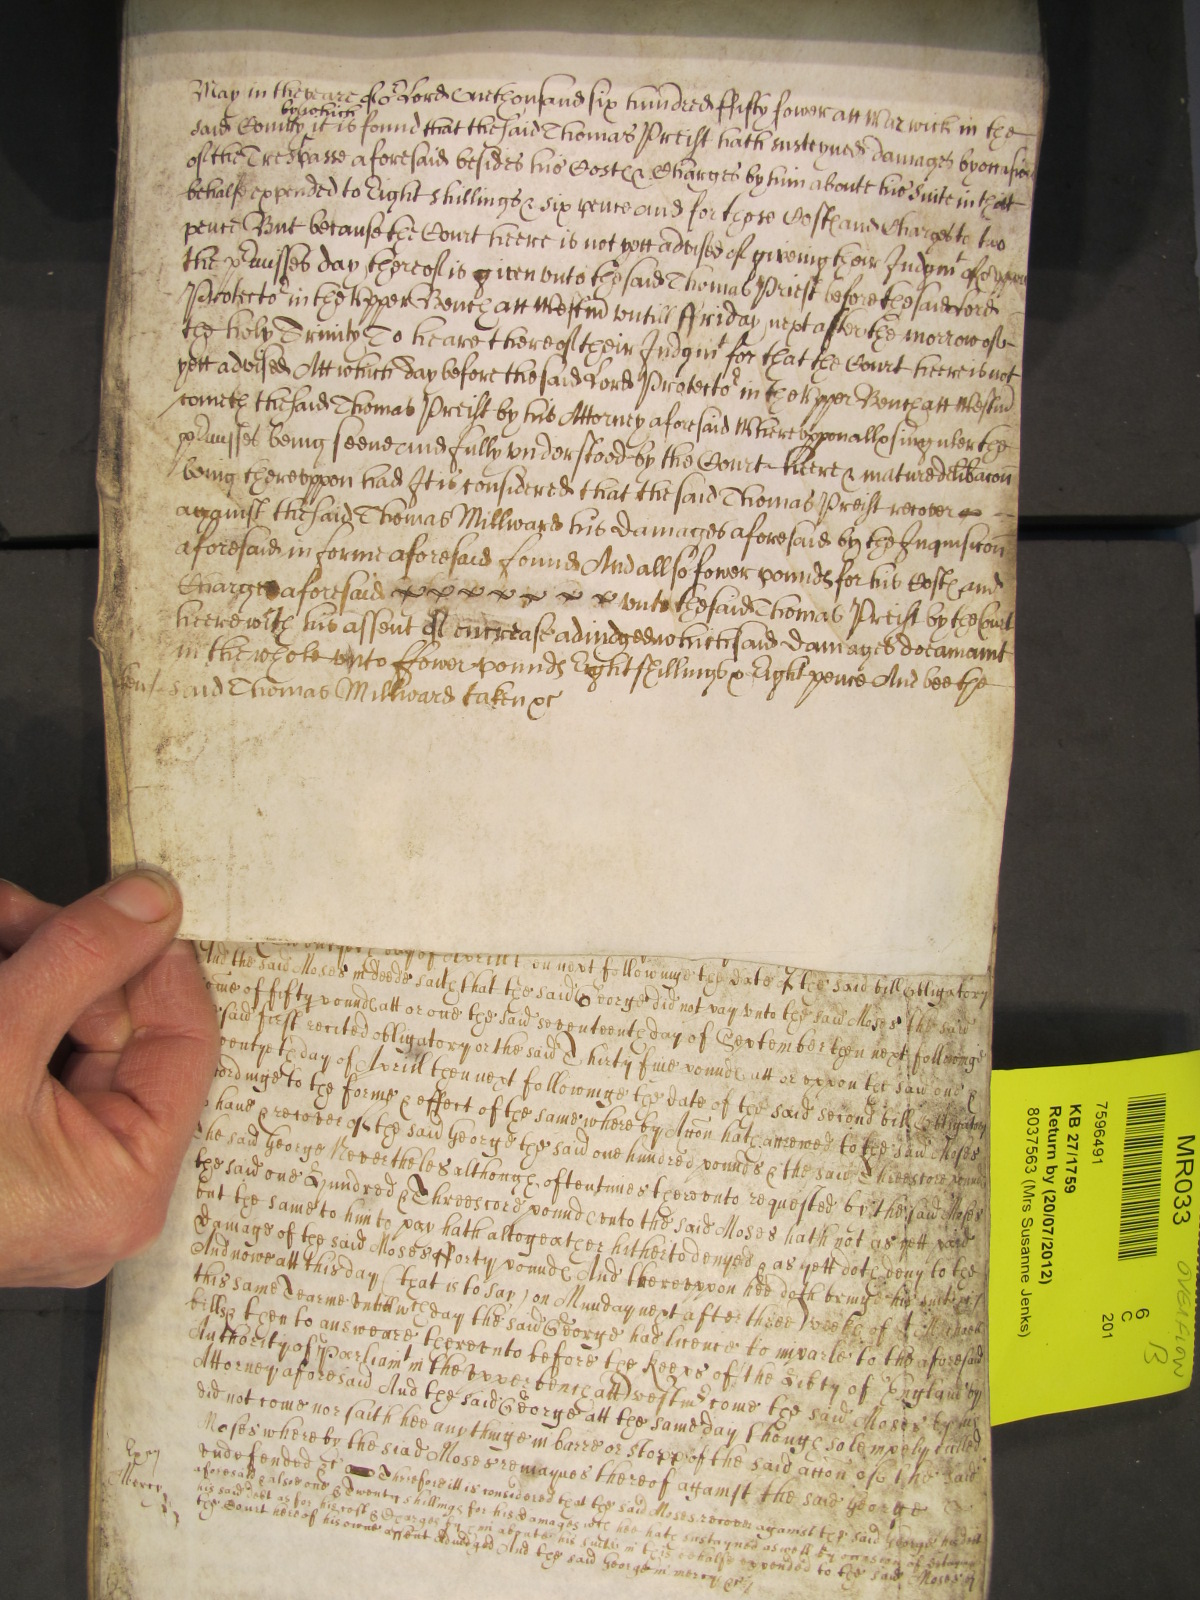 May in the yeare of or Lord One thousand six hundred ffifty fower att Warwick in the
by which
said County it is found that the said Thomas Preist hath susteyned damages by occasion
of the Trespasse aforesaid besides his Costs & Charges by him aboute his suite in that
behalfe expended to Eight shillings & six pence and for those Costs and Charges to two
pence But because the Court heere is not yett advised of giveing their Judgmt of & uppon
the pmisses day thereof is given unto the said Thomas Priest before the said Lord
Protector in the Upper Bench att Westm untill ffriday next after the morrow of
the holy Trinity To heare thereof their Judgmt for that the Court heere is not
yett advised Att which day before the said Lord Protector in the Upper Bench att Westm
cometh the said Thomas Preist by his Attorney aforesaid Whereuppon all & singuler the
pmisses being seene and fully understood by the Court heere & mature delibacon
being thereuppon had It is considered that the said Thomas Preist recover
against the said Thomas Millward his damages aforesaid by the Inquisicon
aforesaid in forme aforesaid found And allso fower pounds for his Costs and
Charges aforesaid unto the said Thomas Preist by the Court
heere with his assent of encrease adiudged which said damages doe amount
in the whole unto ffower pounds Eight shillings & Eight pence And bee the
said Thomas Millward taken &c
day of Aprill next followinge the date of the said bill obligatory
And the said Moses in deede saith that the said George did not pay unto the said Moses the said
some of fifty pounds att or one the said seventeenth day of September then next followinge
said first recited obligatory or the said Thirty five pounds att or uppon the said one &
twentyeth day of Aprill then next followinge the date of the said second bill obligatory
accordinge to the forme & effect of the same whereby Accon hath accrewed to the said Moses
to have & recover of the said George the said one hundred pounds & the said Threescore pounds
The said George Neverthelesse although oftentimes thereunto requested by the said Moses
the said one Hundred & Threescore pounds unto the said Moses hath not as yett paid
but the same to him to pay hath altogeather hitherto denyed & as yett doth deny to the
damage of the said Moses fforty pounds And thereuppon hee doth bringe his suite &c
And nowe att this day (that is to say) on Munday next after three weeks of St Michael
this same Tearme untill wch day the said George had licence to imparle to the aforesaid
bills & then to answeare thereunto before the Keeps of the Liberty of England by
Authority of Parliamt in the upper bench att Westmr come the said Moses by his
Attorney aforesaid And the said George att the same day though solempnely called
did not come nor saith hee anythinge in barre or stopp of the said accon of the said
Moses whereby the siad Moses remaynes thereof against the said George
undefended &c Therefore it is considered that the said Moses recover against the said George his debt
aforesaid & alsoe one & Twenty shillings for his damages wch hee hath sustayned aswell by occasion of
his said debt as for his costs & Charges by him aboute his suite in this behalfe expended to the said Moses by
the Court here of his owne assent adiudged And the said George in mercy &c
Mercy
MR033
OVERFLOW
B
6
C
201
7596491
KB 27/1759
Return by (20/07/2012)
8037563 (Mrs Susanne Jenks)